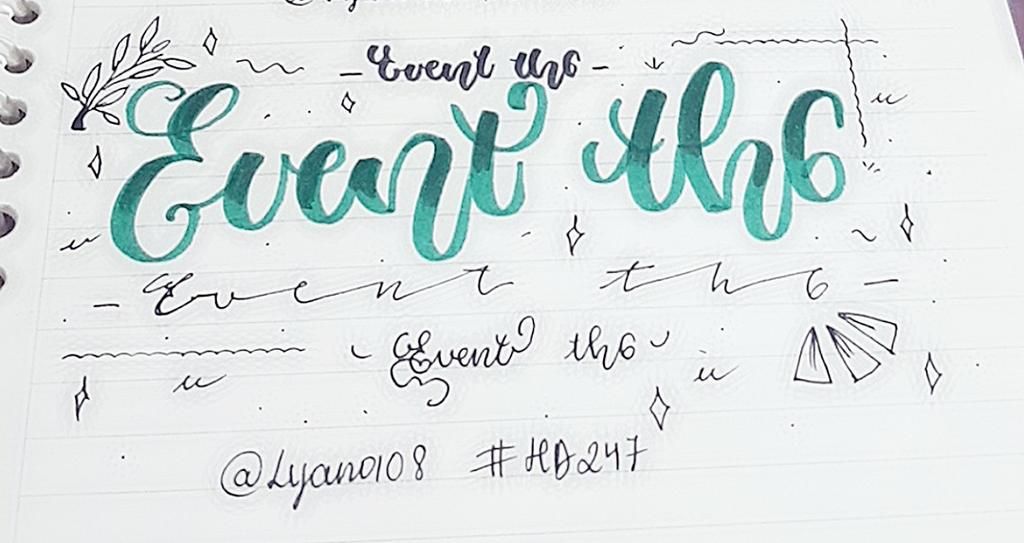 - Event th6 -
Event th6
- Event th6 -
Event th6
@Lyano108 #HD247